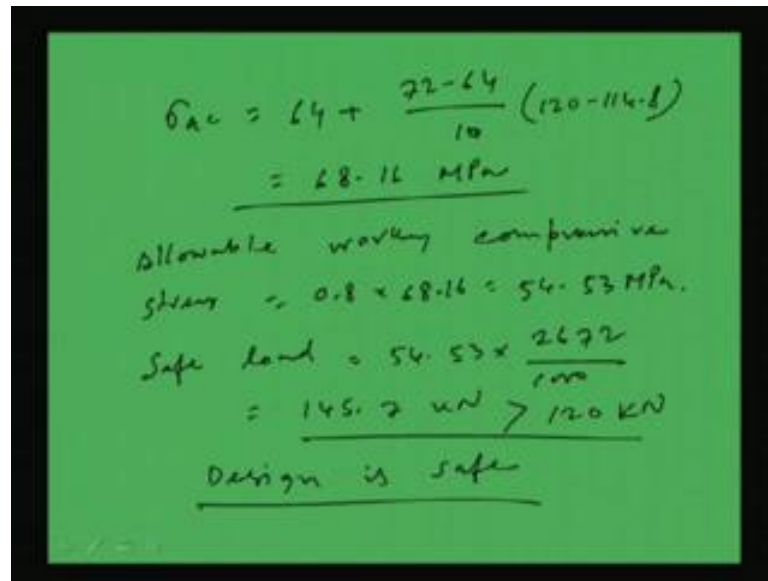 σAc = 64 + 72-64/10 (120-114.8)
= 68.16 MPa
Allowable working compressive
stress = 0.8 × 68.16 = 54.53 MPa.
Safe load = 54.53 × 2672/1000
= 145.7 kN > 120 KN
Design is safe